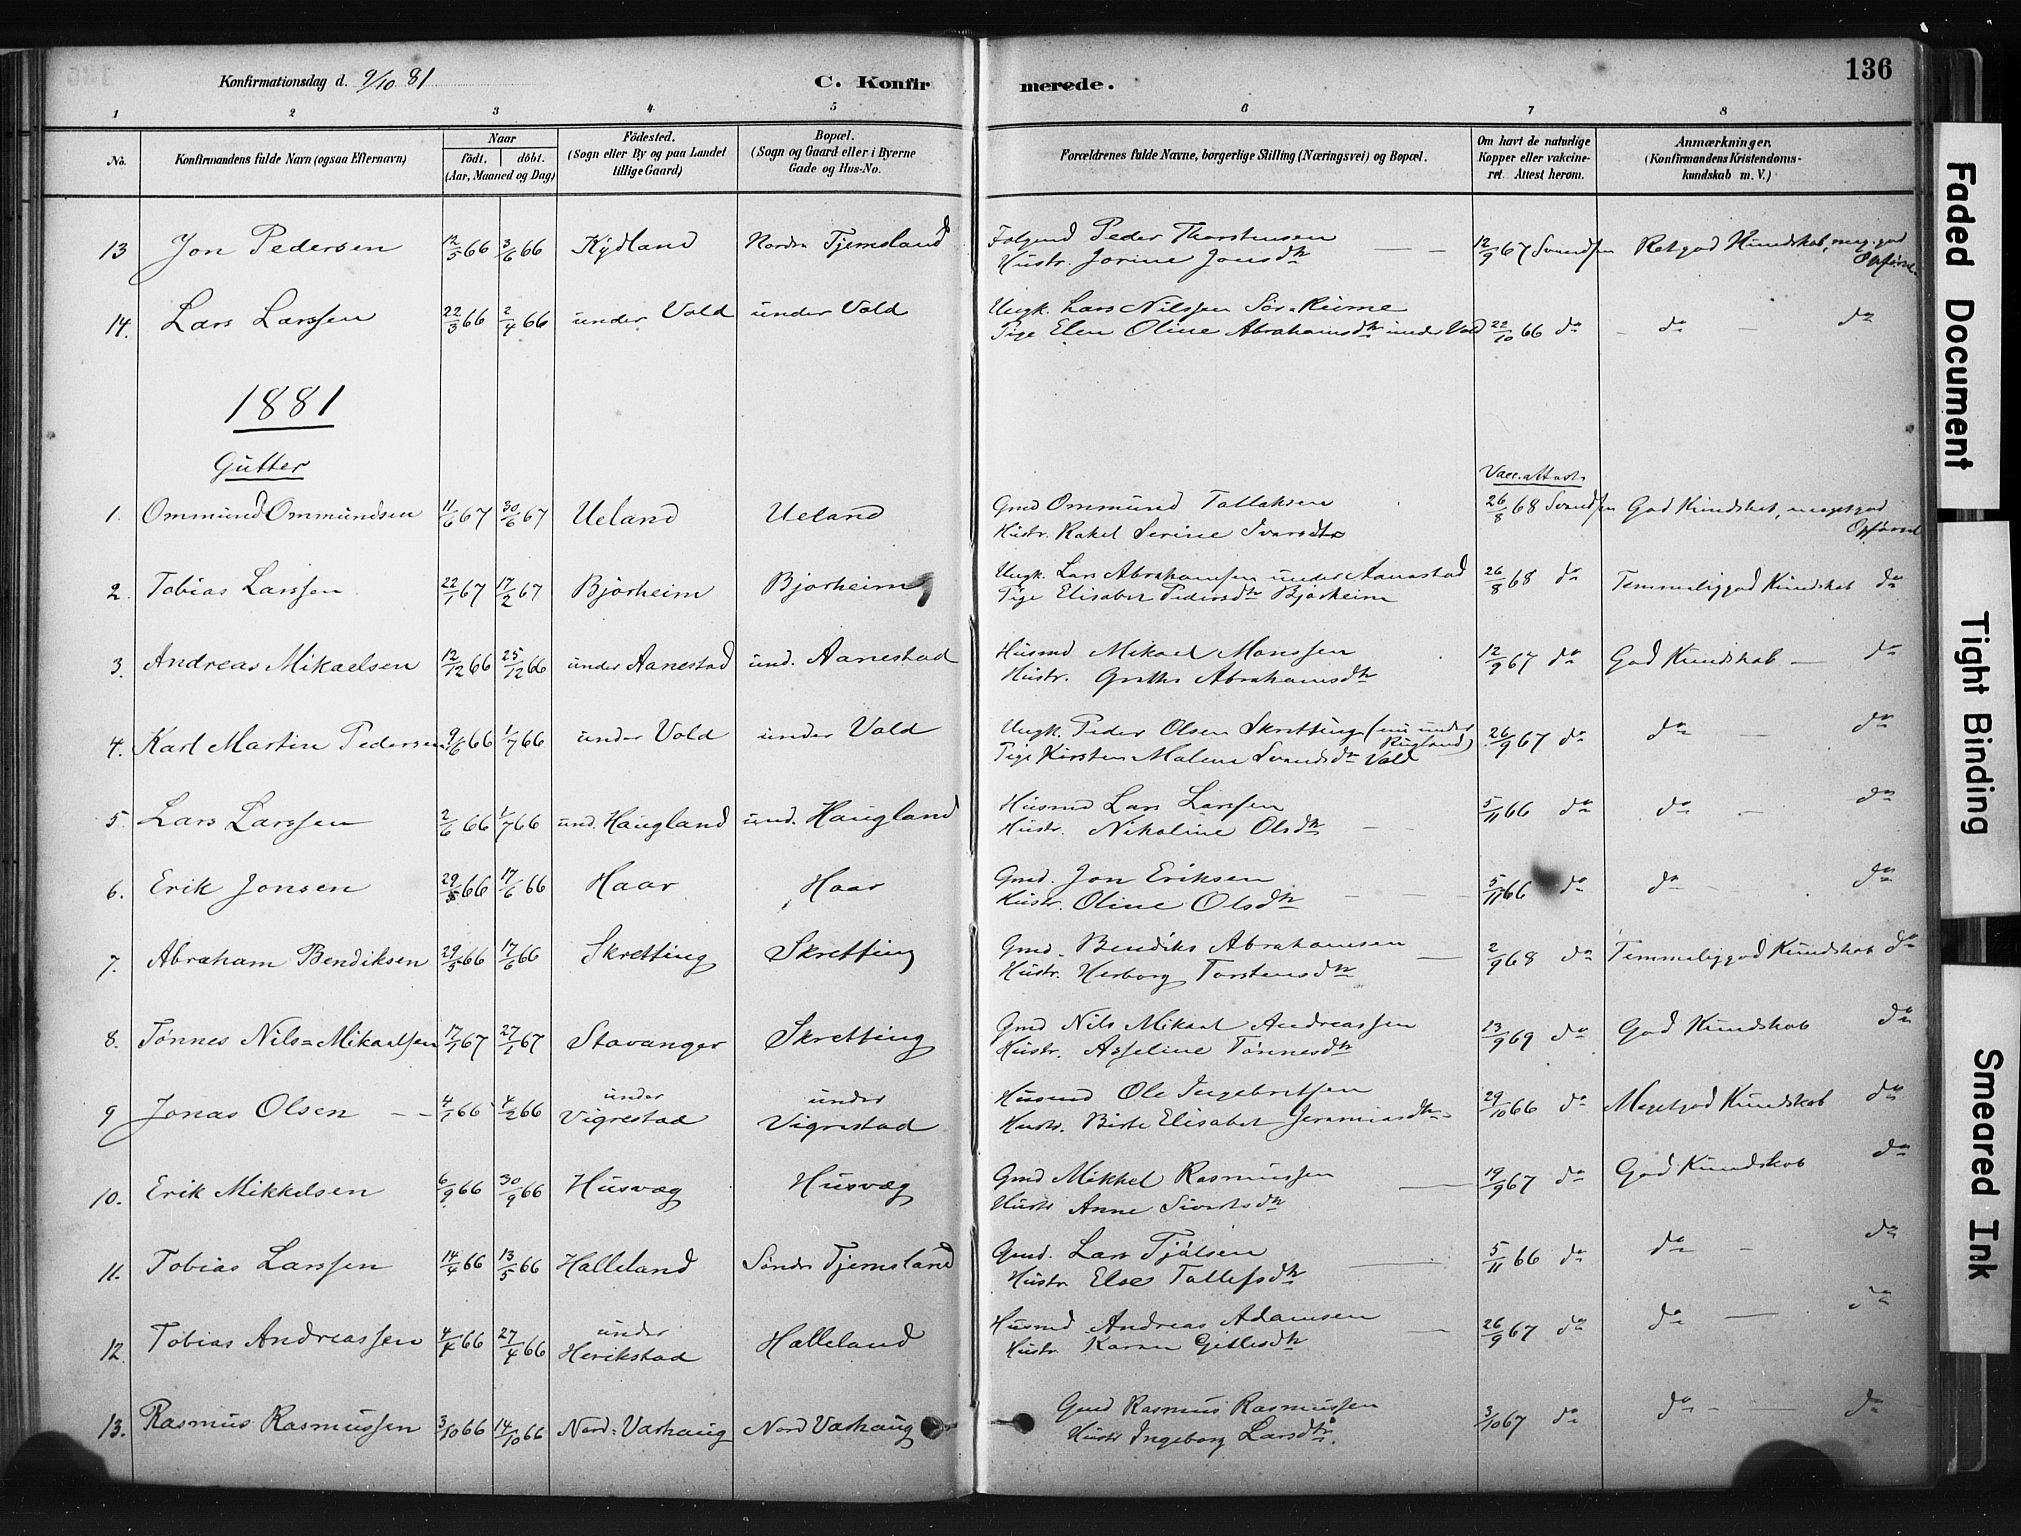 Konfirmationsdag d. 9/10 81
C. Konfirmerede.
136
1 2 3 4 5 6 7 8
No. Konfirmandens fulde Navn (ogsaa Efternavn) Naar födt. döbt. (Aar, Maaned og Dag) Födested. (Sogn eller By og paa Landet tillige Gaard) Bopæl. (Sogn og Gaard eller i Byerne Gade og Hus-No. Forældrenes fulde Navne, borgerlige Stilling (Næringsvei) og Bopæl. Om havt de naturlige Kopper eller vakcineret. Attest herom. Anmærkninger. (Konfirmandens Kristendomskundskab m. V.)
13 Jon Pedersen 12/5 66 3/6 66 Kydland Nordre Tjemsland Peder Thorstensen 12/9 67 Svendsen Retgod Kundskab, meg. god Opførsel
Hustr. Jorine Jonsdtr
14. Lars Larssen 22/3 66 2/4 66 under Vold under Vold Ungk. Lars Nilssen 22/10 66 do - do - do
Pige Elen Oline Abrahamsdtr under Vold
1881
Gutter
Vacc. attest
1. Ommund Ommundsen 11/6 67 30/6 67 Ueland Ueland Gmd Ommund Tollaksen 26/8 68 Svendsen God Kundskab, meget god Opførsel
Hustr. Rakel Serine Ivarsdtr
2. Tobias Larssen 22/1 67 17/2 67 Bjorheim Bjorheim Ungk. Lars Abrahamsen under Aanestad 26/8 68 do Temmelig god Kundskab do
Pige Elisabet Pedersdtr Bjorheim
3. Andreas Mikaelsen 12/12 66 25/12 66 under Aanestad und. Aanestad Husmd Mikael Monssen 12/9 67 do God Kundskab - do
Hustr. Abrahamsdtr
4. Karl Martin Pedersen 9/6 66 1/7 66 under Vold under Vold Ungk. Peder Olsen Skretting (nu under 26/9 67 do do - do
Pige Kirsten Malene Svendsdtr Vold
5. Lars Larssen 2/6 66 1/7 66 und. Haugland und. Haugland Husmd Lars Larssen 5/11 66 do do - do
Hustr. Nikoline Olsdtr
6. Erik Jonsen 29/5 66 17/6 66 Haar Haar Gmd. Jon Eriksen 5/11 66 do do - do
Hustr. Oline Olsdtr
7. Abraham Bendiksen 29/5 66 17/6 66 Skretting Skretting Gmd. Bendiks Abrahamsen 2/9 68 do Temmelig god Kundskab do
Hustr. Herborg Torstensdtr
8. Tønnes Nils=Mikaelsen 17/1 67 27/1 67 Stavanger Skretting Gmd Nils Mikael Andreassen 13/9 69 do God Kundskab do
Hustr. Asseline Tønnesdtr
9 Jonas Olsen 4/1 66 4/2 66 under Vigrestad under Vigrestad Husmd Ole Ingebretsen 29/10 66 do Meget god Kundskab do
Hustr. Birte Elisabet Jeremiasdtr
10. Erik Mikkelsen 6/9 66 30/9 66 Husvæg Husvæg Gmd Mikkel Rasmussen 19/9 67 do God Kundskab do
Hustr Anne Sivertsdtr
11. Tobias Larssen 14/4 66 13/5 66 Halleland Søndre Tjemsland Gmd. Lars Tjølsen 5/11 66 do do - do
Hustr Else Tollefsdtr
12. Tobias Andreassen 4/4 66 27/4 66 under Herikstad Halleland Husmd Andreas Adamsen 26/9 67 do do - do
Hustr Karen Gitlesdtr
13. Rasmus Rasmussen 3/10 66 14/10 66 Nord=Varhaug Nord Varhaug Gmd Rasmus Rasmussen 3/10 67 do do - do
Hustr Ingeborg Larsdtr.
Faded Document
Tight Binding
Smeared Ink